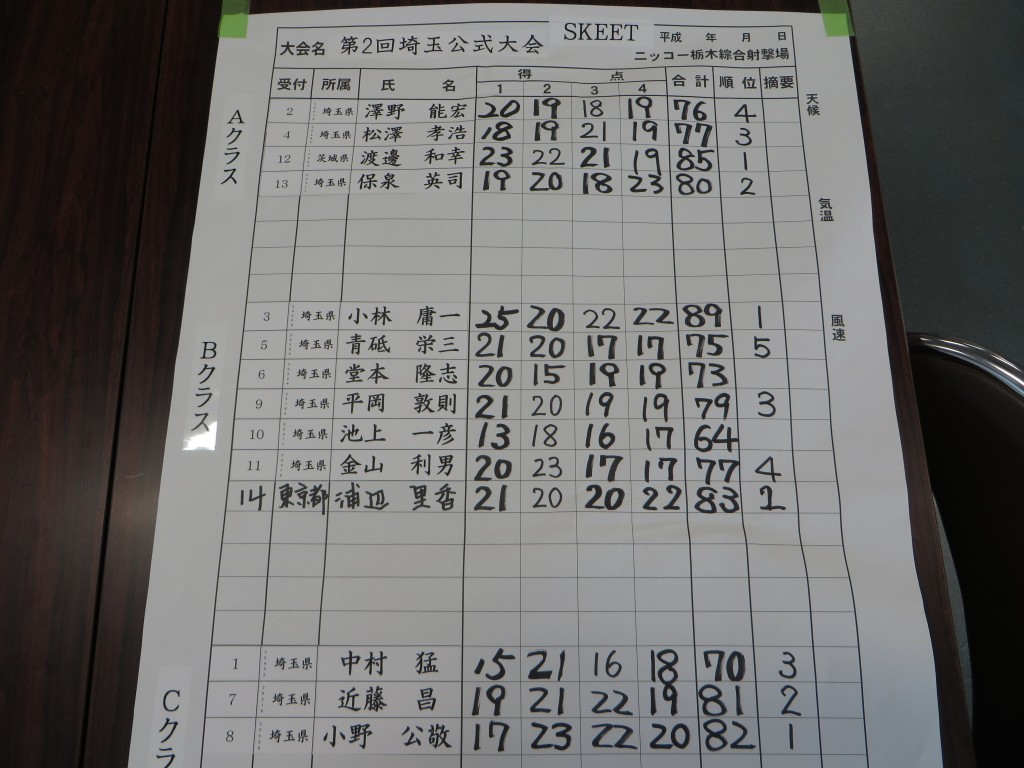 大会名 第2回埼玉公式大会 SKEET 平成 年 月 日
ニッコー栃木綜合射撃場
受付 所属 氏 名 得 点 合計 順位 摘要
1 2 3 4
天候
気温
風速
Aクラス
2 埼玉県 澤野 能宏 20 19 18 19 76 4
4 埼玉県 松澤 孝浩 18 19 21 19 77 3
12 茨城県 渡邉 和幸 23 22 21 19 85 1
13 埼玉県 保泉 英司 19 20 18 23 80 2
Bクラス
3 埼玉県 小林 庸一 25 20 22 22 89 1
5 埼玉県 青砥 栄三 21 20 17 17 75 5
6 埼玉県 堂本 隆志 20 15 19 19 73
9 埼玉県 平岡 敦則 21 20 19 19 79 3
10 埼玉県 池上 一彦 13 18 16 17 64
11 埼玉県 金山 利男 20 23 17 17 77 4
14 東京都 浦辺 里香 21 20 20 22 83 2
Cクラ
1 埼玉県 中村 猛 15 21 16 18 70 3
7 埼玉県 近藤 昌 19 21 22 19 81 2
8 埼玉県 小野 公敬 17 23 22 20 82 1